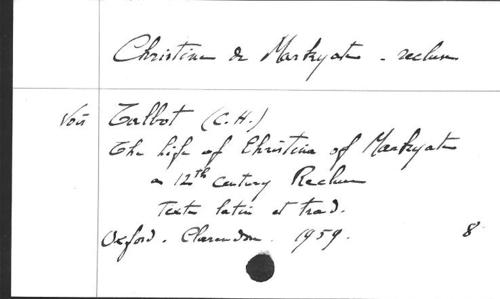 Christina de Markyate - recluse
Voir Talbot (C.H.)
The life of Christina of Markyate
a 12th century Recluse
Texte latin et trad.
Oxford. Clarendon. 1959. 8°